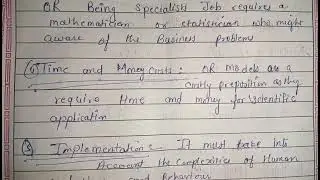 OR Being Specialists Job requires a
mathematician or statistician who might
aware of the Business problems
(4) Time and Money Costs : OR models are a
Costly preposition as they
require time and money for scientific
application
(5) Implementation : It must take into
Account the Complexities of Human
and Behaviour